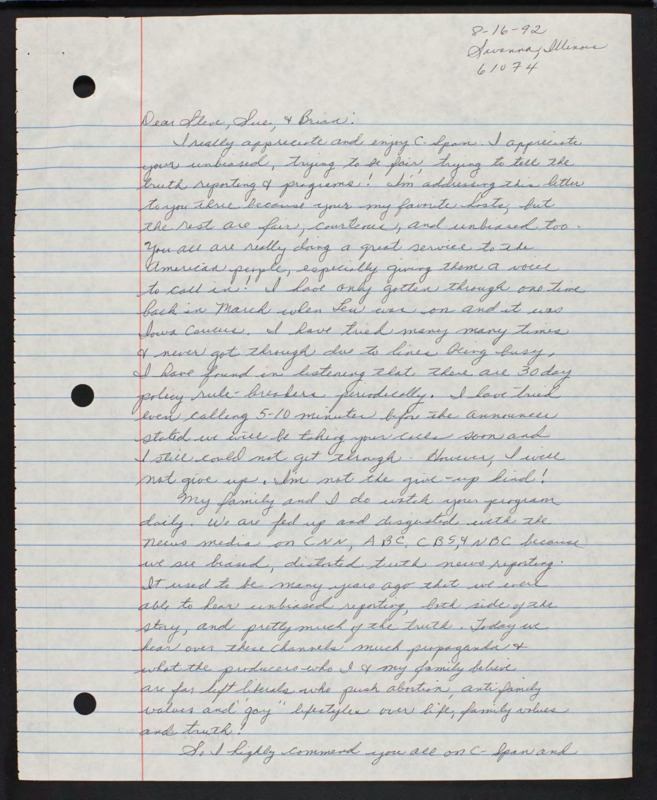 8-16-92
Savanna, Illinois
61074
Dear Steve, Sue, & Brian:
I really appreciate and enjoy C-Span. I appreciate
your unbiased, trying to be fair, trying to tell the
truth reporting & programs! I'm addressing this letter
to you three because your my favorite hosts, but
the rest are fair, courteous, and unbiased too.
You all are really doing a great service to the
American people, especially giving them a voice
to call in! I have only gotten through one time
back in March when Lew was on and it was
Iowa Caucus. I have tried many many times
& never got through due to lines being busy,
I have found in listening that there are 30 day
policy rule-breakers periodically. I have tried
even calling 5-10 minutes before the announcer
stated we will be taking your calls soon and
I still could not get through. However, I will
not give up. I'm not the give-up kind!
My family and I do watch your program
daily. We are fed up and disgusted with the
news media on CNN, ABC, CBS, & NBC because
we see biased, distorted truth news reporting.
It used to be many years ago that we were
able to hear unbiased reporting, both side of the
story, and pretty much of the truth. Today we
hear over these channels much propaganda &
what the producers who I & my family believe
are far left liberals who push abortion, anti family
values and "gay" lifestyles over life, family values
and truth!
So I highly commend you all on C-Span and